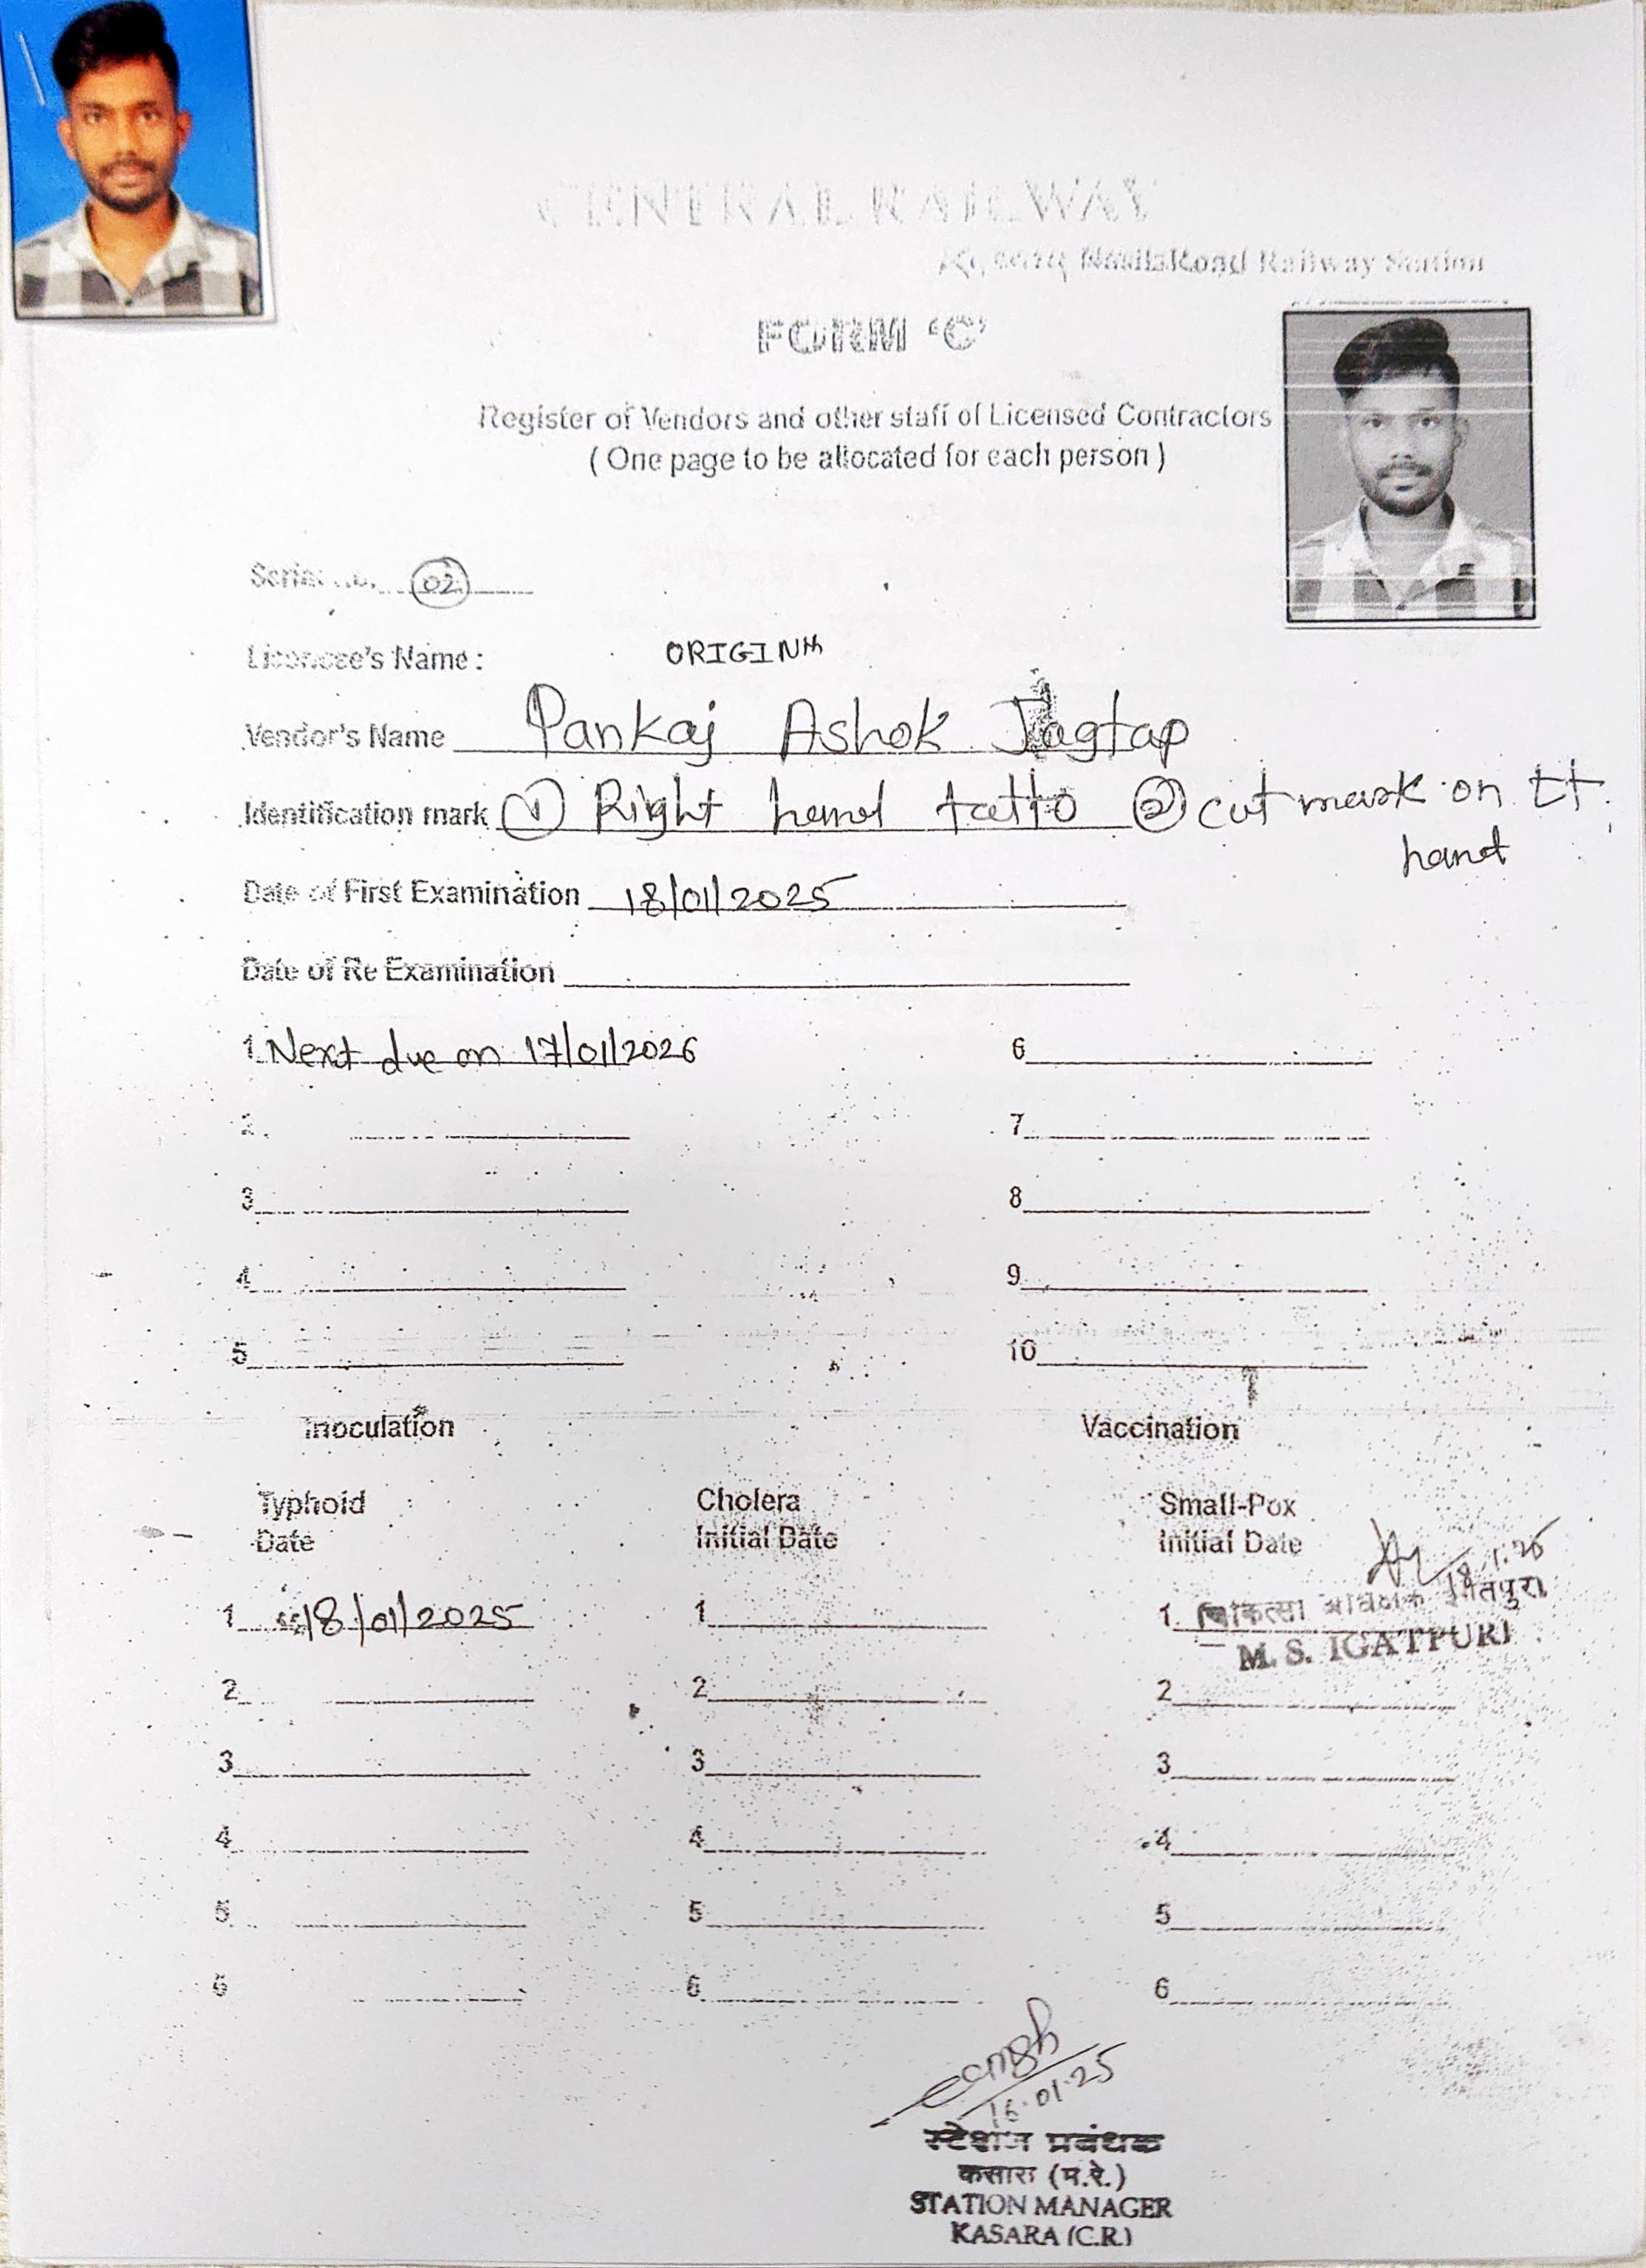 CENTRAL RAILWAY
Road Railway Station
FORM 'C'
Register of Vendors and other staff of Licensed Contractors
( One page to be allocated for each person )
Serial No. 02
Licencee's Name : ORIGIN
Vendor's Name Pankaj Ashok Jagtap
Identification mark ① Right hand tatto ② cut mark on Lt.
hand
Date of First Examination 18/01/2025
Date of Re Examination
1 Next due on 17/01/2026 6
2. 7
3 8
4 9
5 10
Inoculation Vaccination
Typhoid Cholera Small-Pox
Date Initial Date Initial Date
1 18/01/2025 1 1
चिकित्सा अधीक्षक इगतपुरी
M. S. IGATPURI
2 2 2
3 3 3
4 4 4
5 5 5
6 6 6
16.01.25
स्टेशन प्रबंधक
कसारा (म.रे.)
STATION MANAGER
KASARA (C.R.)